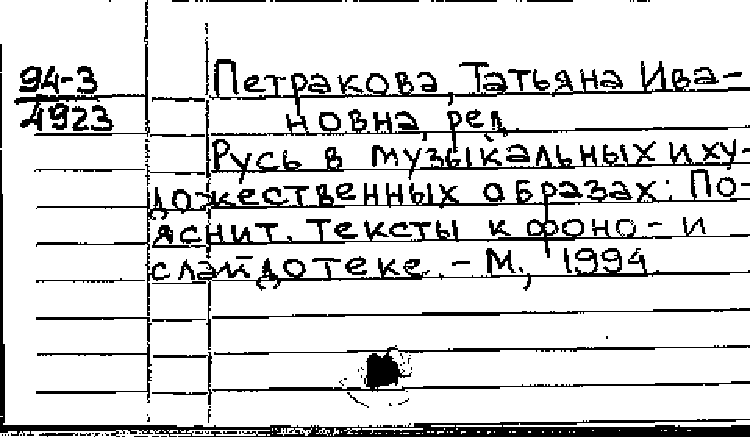 94-3
4923
Петракова, Татьяна Ива-
новна, ред.
Русь в музыкальных и ху-
дожественных образах: По-
яснит. тексты к фоно- и
слайдотеке. - М., 1994